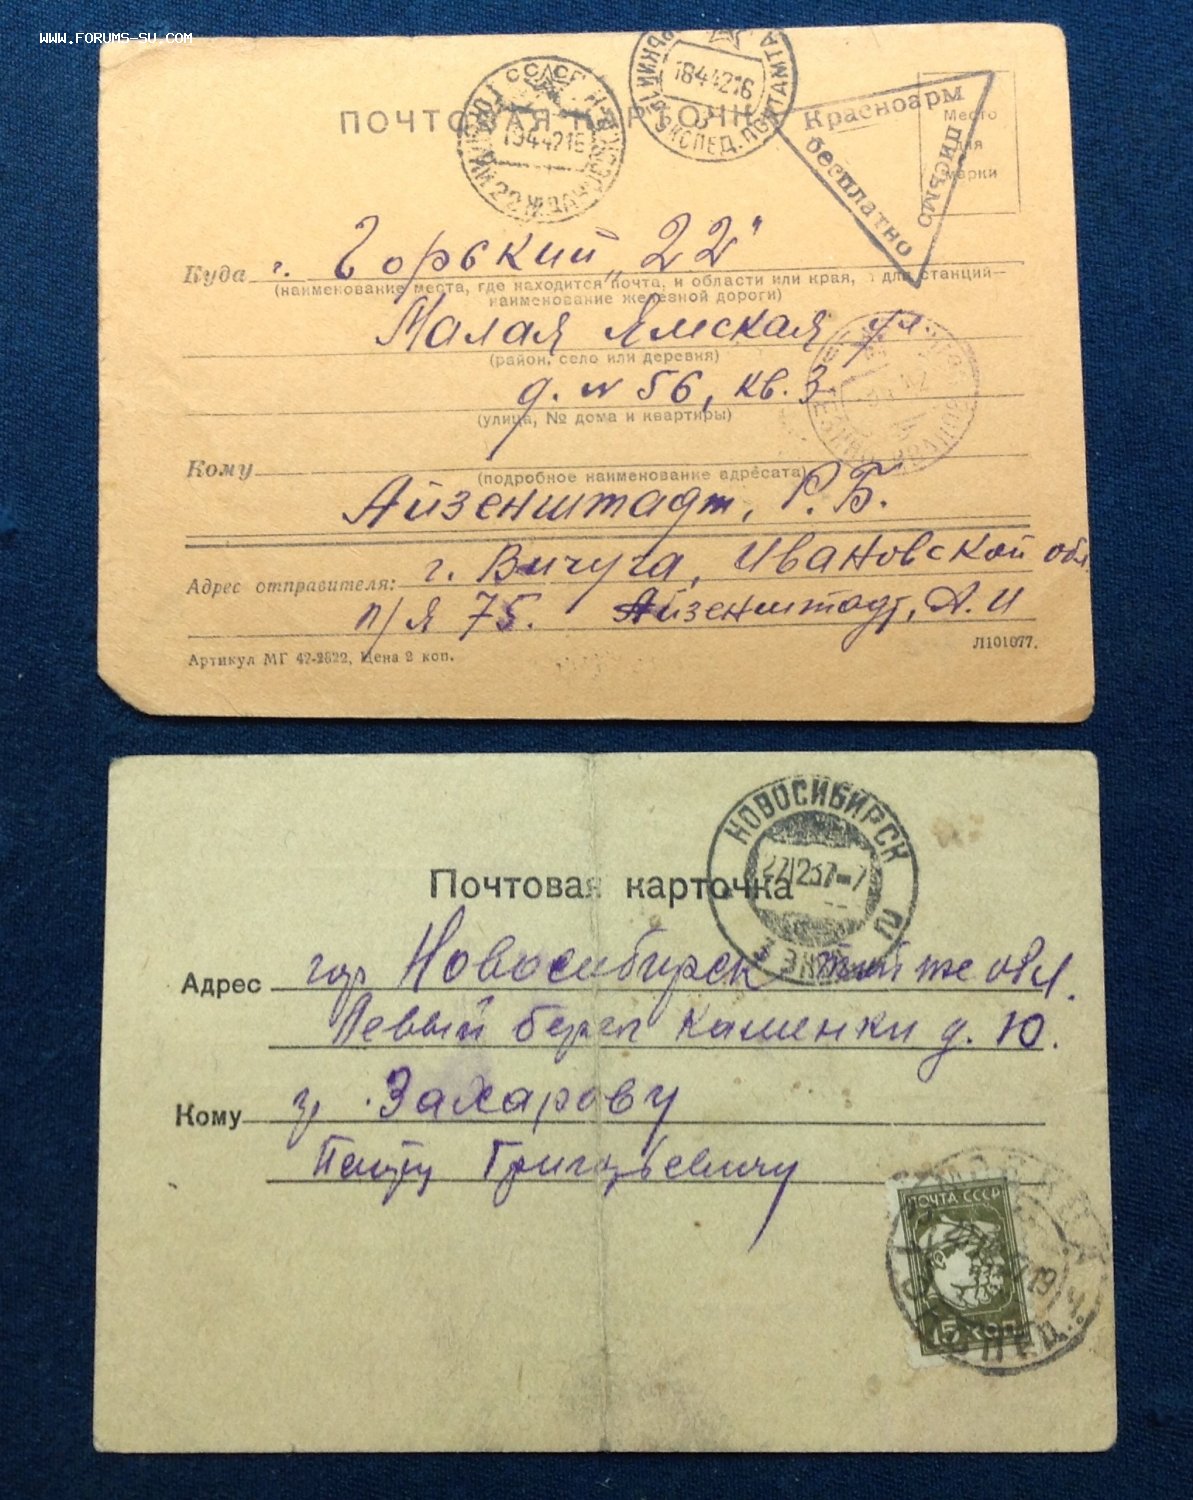 WWW.FORUMS-SU.COM
ПОЧТОВАЯ КАРТОЧКА
18 4 42 16
ЭКСПЕД. ПОЧТАМТА
19 4 42 16
Красноарм
письмо
бесплатно
Место
для
марки
Куда г. Горький „22"
(наименование места, где находится почта, и области или края, для станций—
наименование железной дороги)
Малая Ямская ул.
(район, село или деревня)
д. № 56, кв. 3
(улица, № дома и квартиры)
Кому
(подробное наименование адресата)
Айзенштадт, Р. Б.
Адрес отправителя: г. Вичуга, Ивановской обл.
п/я 75. Айзенштадт, А. И
Артикул МГ 42-2822, Цена 2 коп.
Л101077.
НОВОСИБИРСК
27 12 37 - 7
Почтовая карточка
Адрес гор Новосибирск той же обл.
Левый берег Каменки д. 10.
Кому гр. Захарову
Петру Григорьевичу
ПОЧТА СССР
15 КОП